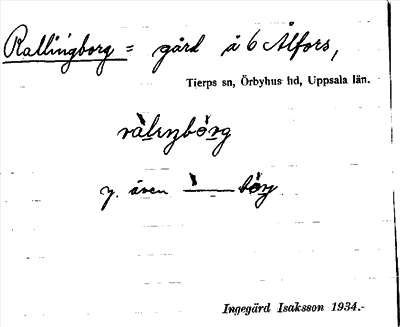 Rallingborg = gård å 6 Ålfors,
Tierps sn, Örbyhus hd, Uppsala län.
y. även
Ingegärd Isaksson 1934.-